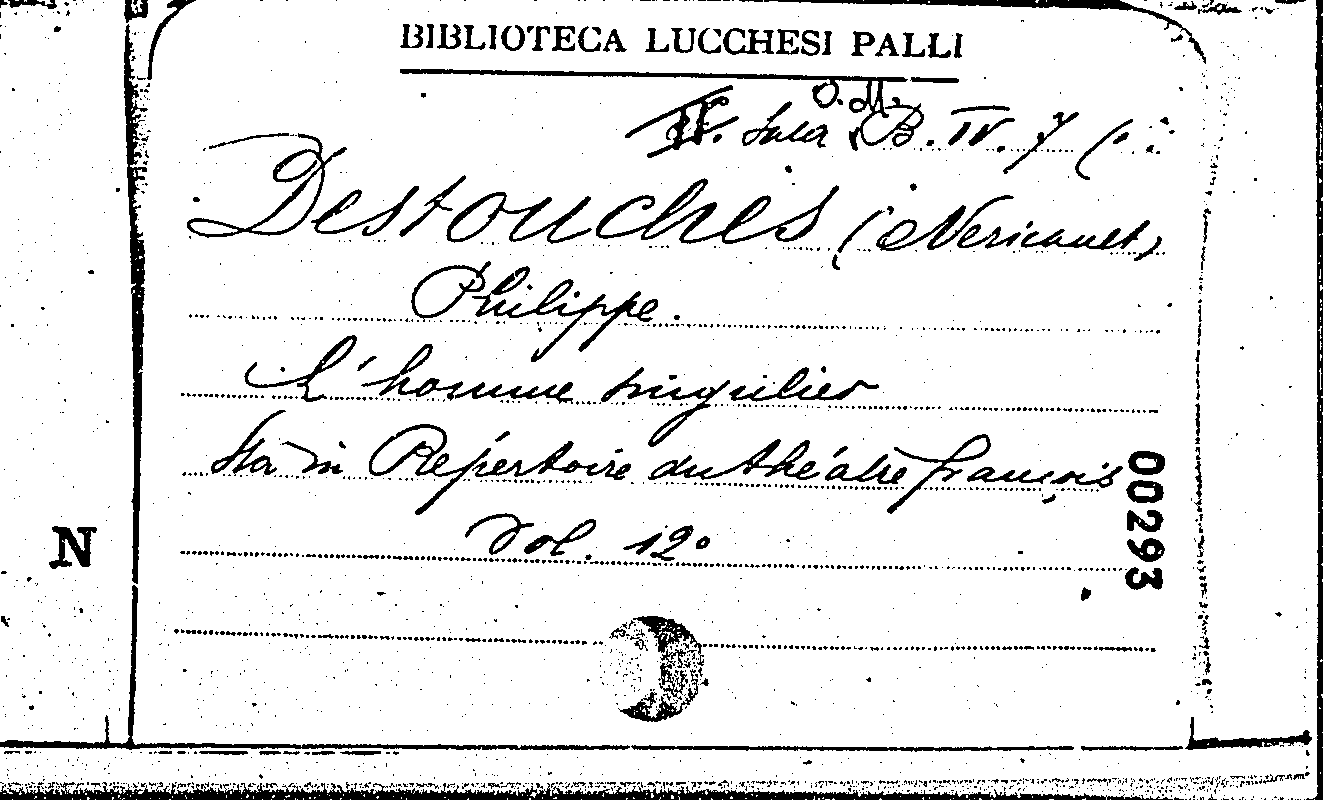 BIBLIOTECA LUCCHESI PALLI
O. M.
Sala B. IV. 7 (
Destouches (Nericault)
Philippe.
L'homme singulier
Sta in Répertoire du théâtre françois
Vol. 12°
00293
N